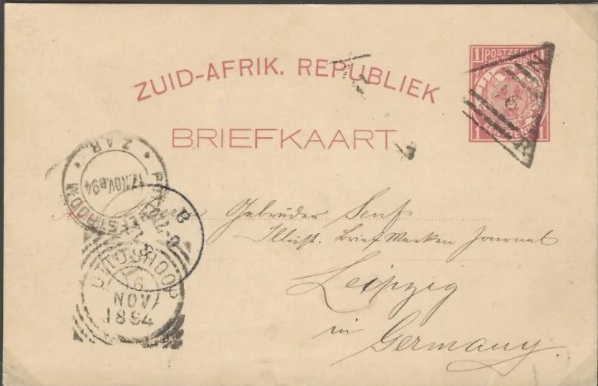 ZUID-AFRIK. REPUBLIEK
BRIEFKAART.
1 POSTZEGEL 1
1 1
Z.A.R.
17 NOV. 94
NOV
1894
Gebrüder Senf
Illust. Brief Marken Journal
Leipzig
in
Germany.